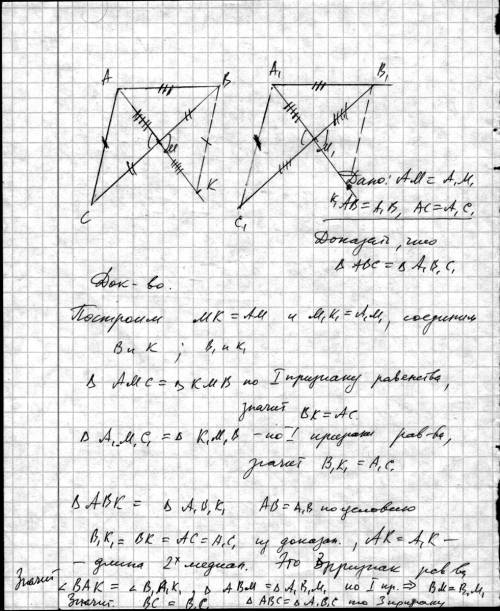 A B A₁ B₁
M M₁
K K₁
C C₁
Дано: AM = A₁M₁
AB = A₁B₁, AC = A₁C₁
Доказать, что
△ABC = △A₁B₁C₁
Док-во.
Построим MK = AM и M₁K₁ = A₁M₁, соединим
B и K ; B₁ и K₁
△ AMC = △ KMB по I признаку равенства,
значит BK = AC.
△ A₁M₁C₁ = △ K₁M₁B - по I признаку рав-ва,
значит B₁K₁ = A₁C₁
△ABK = △A₁B₁K₁ AB = A₁B по условию
B₁K₁ = BK = AC = A₁C₁ из доказан., AK = A₁K -
- длина 2ˣ медиан. Это 3 признак рав-ва
Значит ∠BAK = ∠B₁A₁K₁, △ABM = △A₁B₁M₁ по I пр. ⇒ BM = B₁M₁
Значит BC = B₁C₁ △ABC = △A₁B₁C₁ по 3 признаку